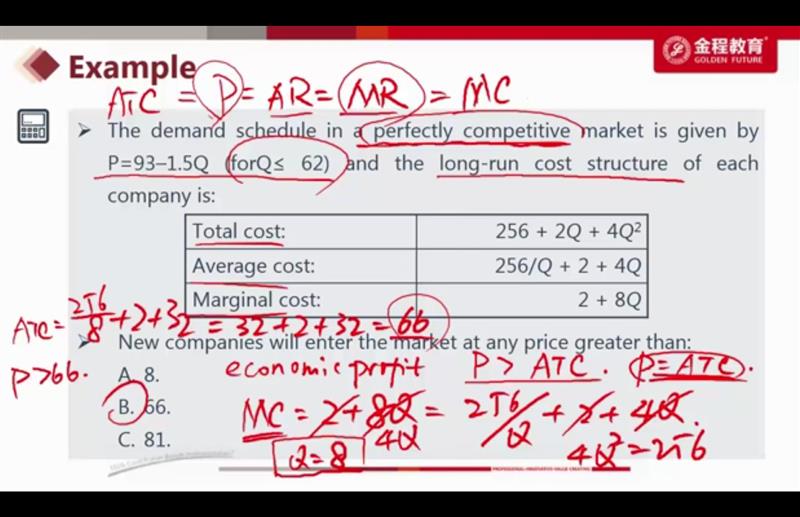 金程教育
GOLDEN FUTURE
Example
ATC = P = AR = MR = MC
The demand schedule in a perfectly competitive market is given by
P=93–1.5Q (forQ≤ 62) and the long-run cost structure of each
company is:
Total cost: 256 + 2Q + 4Q²
Average cost: 256/Q + 2 + 4Q
Marginal cost: 2 + 8Q
ATC = 256/8 + 2 + 32 = 32 + 2 + 32 = 66
New companies will enter the market at any price greater than:
P > 66.
economic profit P > ATC. P = ATC.
A. 8.
B. 66.
MC = 2 + 8Q = 256/Q + 2 + 4Q.
C. 81.
4Q 4Q² = 256
Q = 8